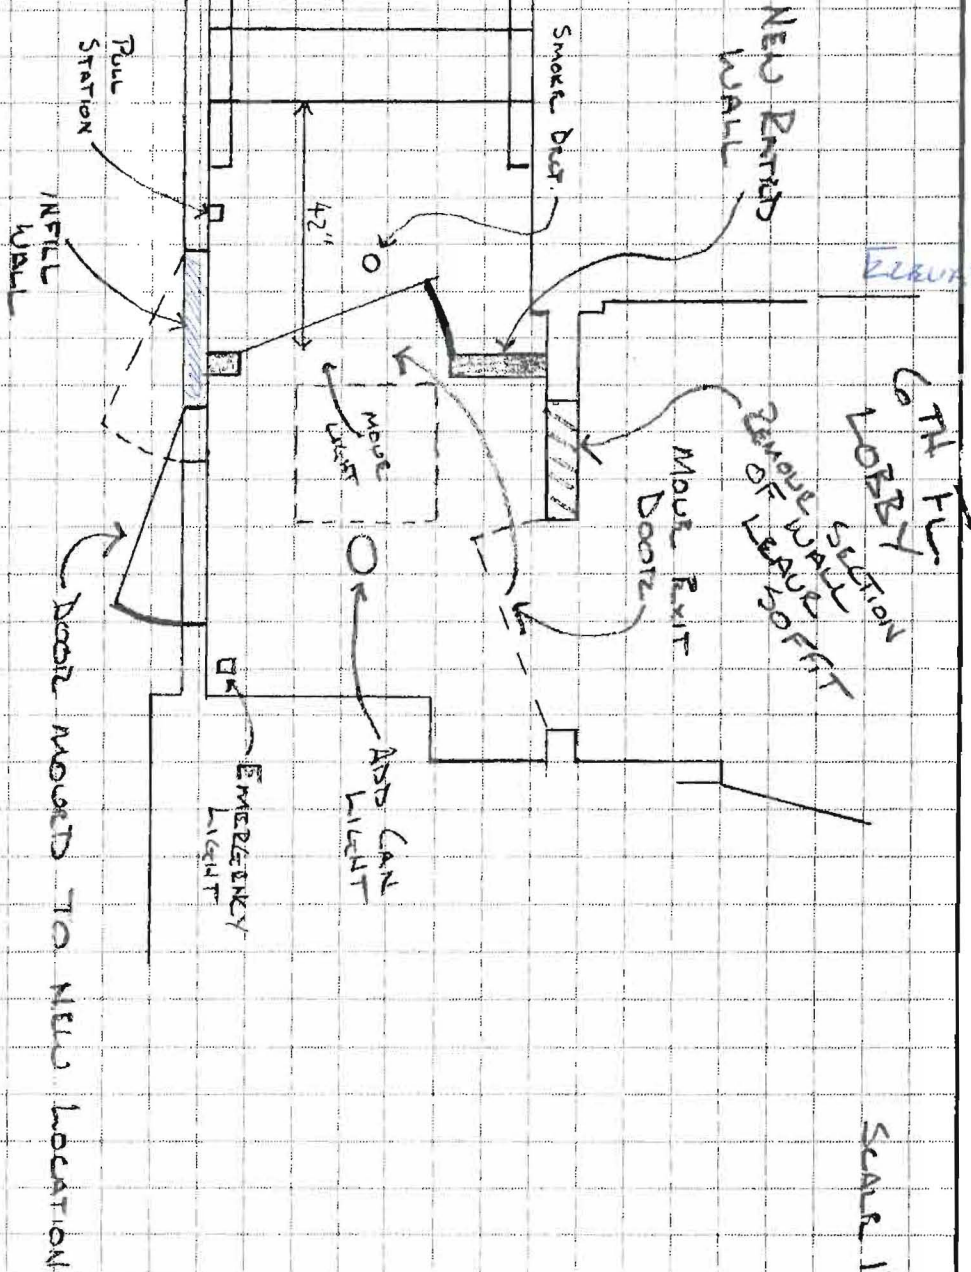 6TH FL.
LOBBY
SCALE 1
NEW RATED
WALL
REMOVE SECTION
OF WALL
LEAVE SOFFIT
MOVE EXIT
DOOR
SMOKE DECT.
42"
MOVE
LIGHT
ADD CAN
LIGHT
EMERGENCY
LIGHT
PULL
STATION
INFILL
WALL
DOOR MOVED TO NEW LOCATION